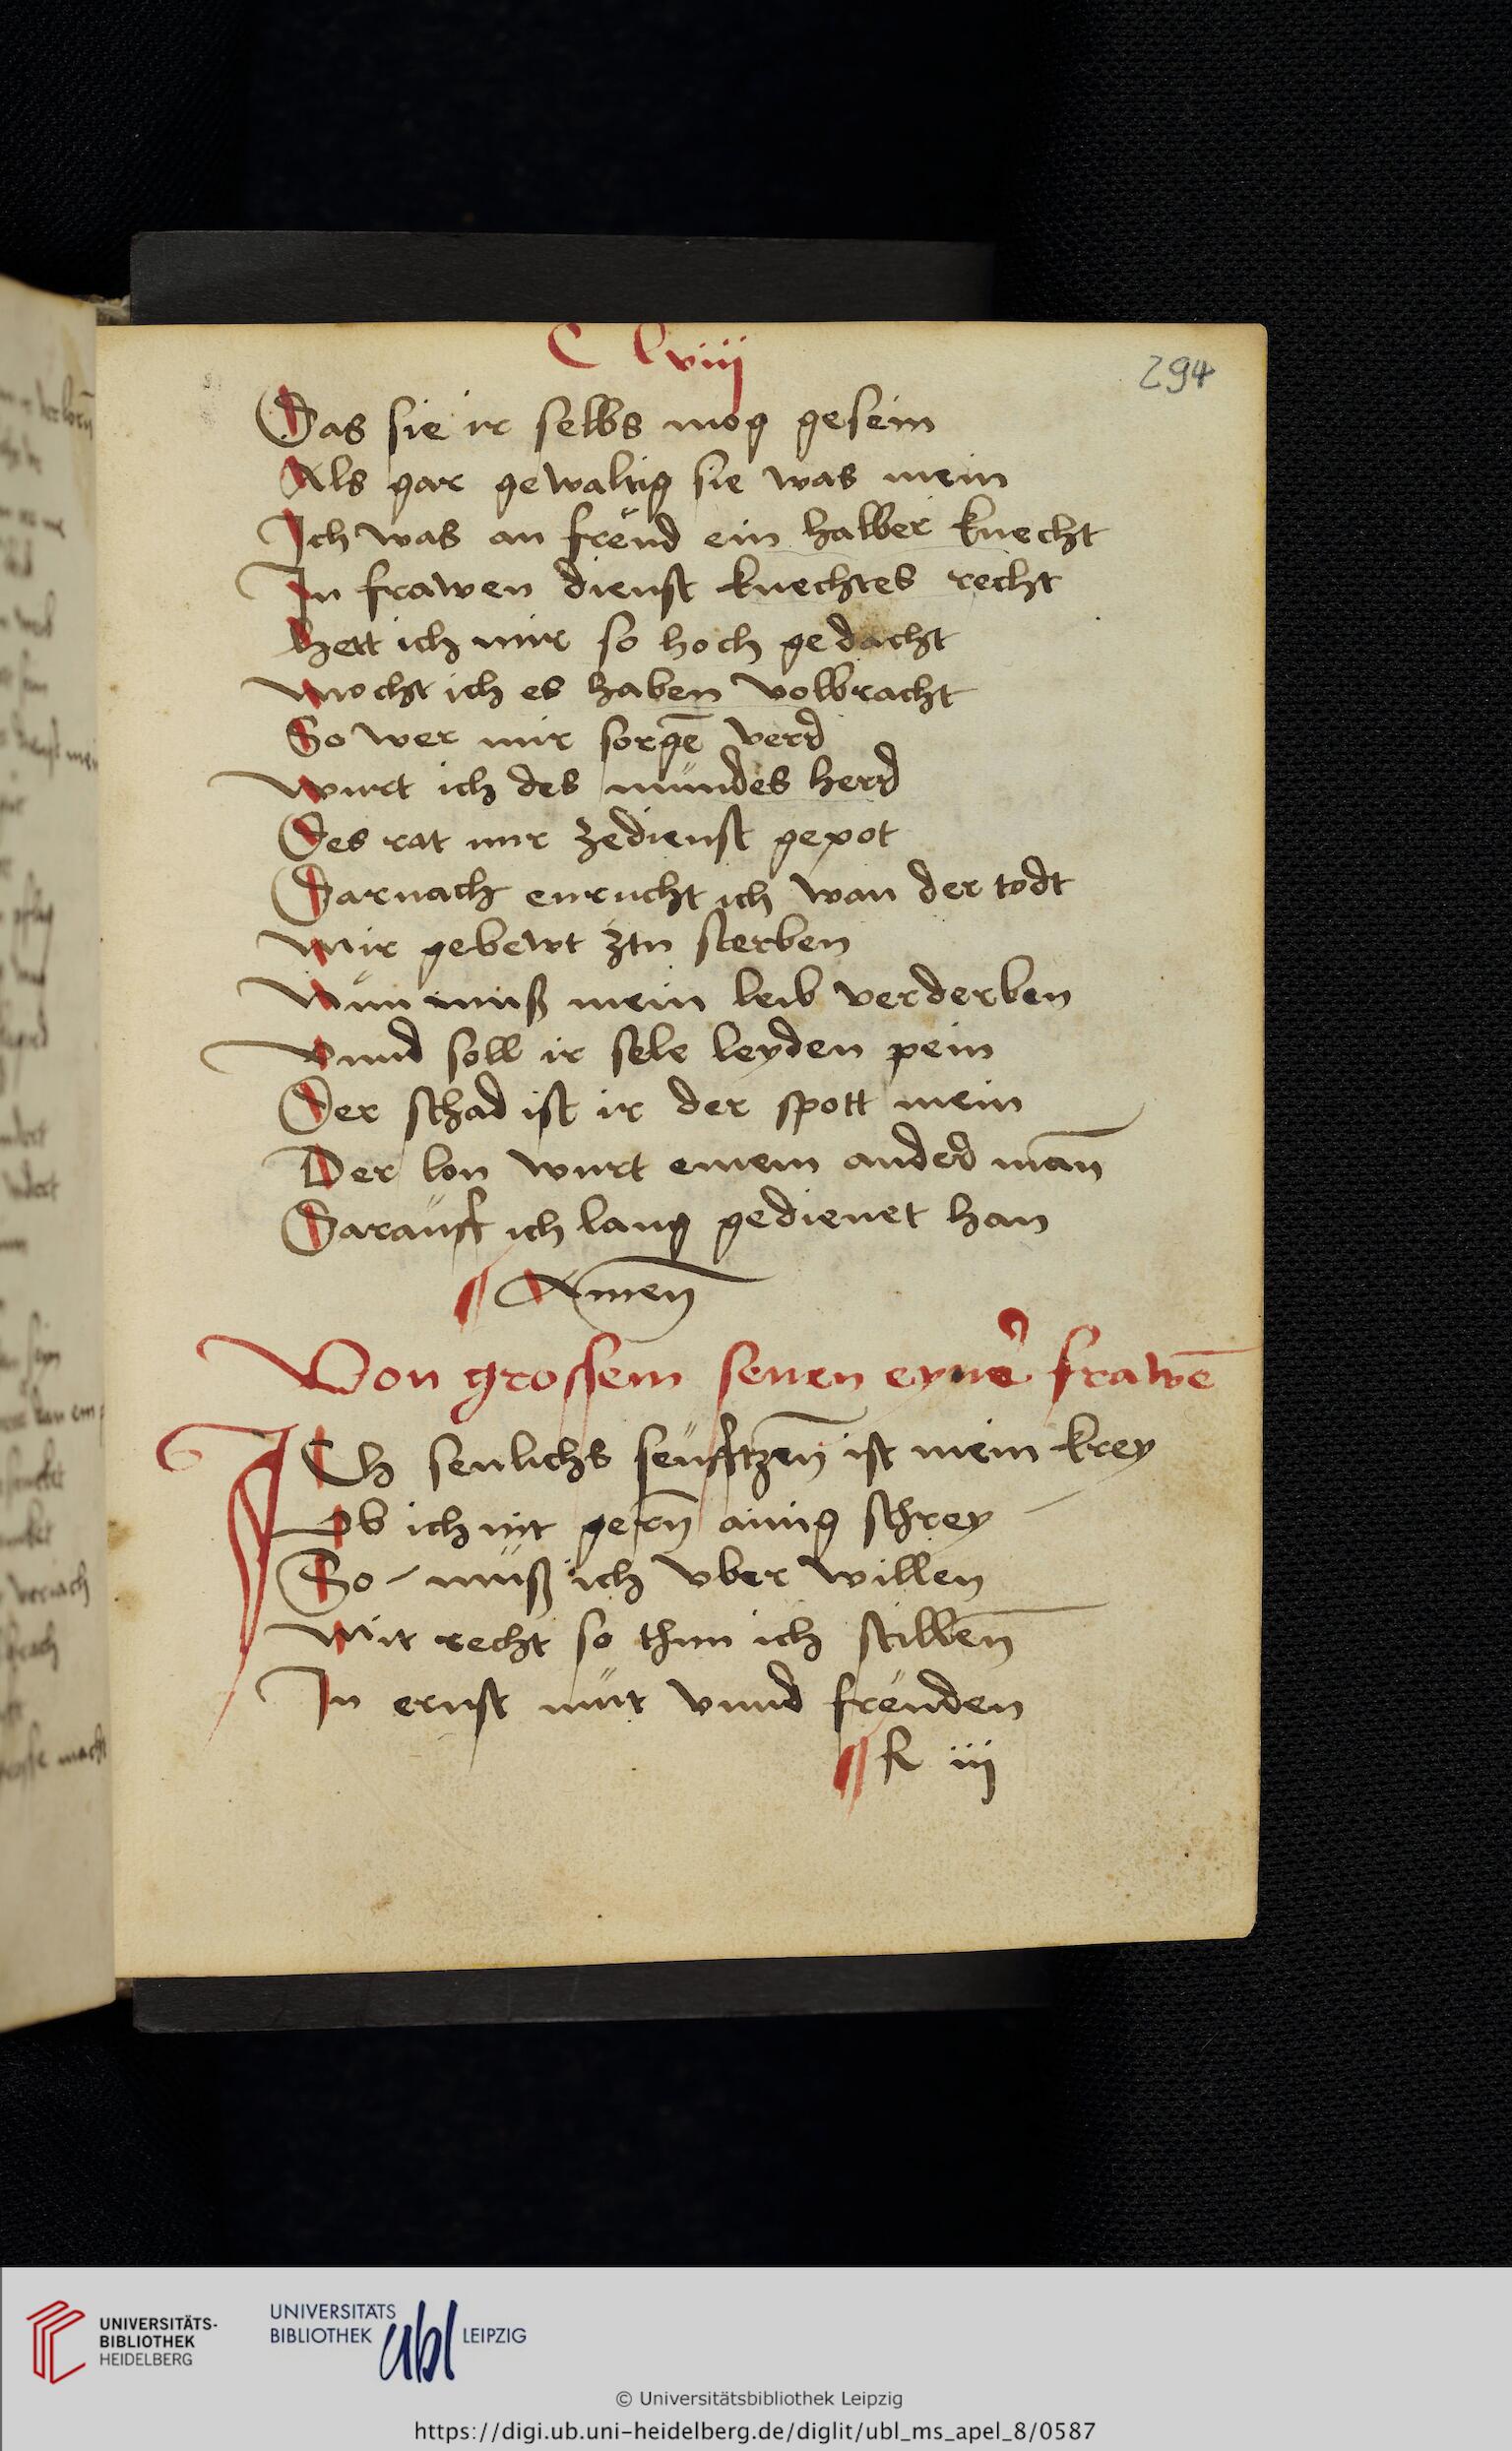 C lviij
294
Das sie ir selbs mog gesein
Als gar gewaltig sie was mein
Ich was an freüd ein halber knecht
In frawen dienst knechtes recht
Hett ich mir so hoch gedacht
Mocht ich es haben volbracht
So wer mir sorgē verd
Wurt ich des mündes herd
Des rat mir zedienst gepot
Darnach enrucht ich wan der todt
Mir gebewt ztu sterben
Nün müß mein leib verderben
Vnnd soll ir sele leyden pein
Der schad ist ir der spott mein
Der lon wurt einem anderd man̄
Daraüff ich lang gedienet han
Amen
Von grossem senen eyner frawē
ICh senlichs seüfftzen̄ ist mein krey
Ob ich nit gern̄ ainig schrey
So müß ich vber willen
Mit recht so thun ich stillen̄
In ernst müt vnnd freüden
R iij
UNIVERSITÄTS-
BIBLIOTHEK
HEIDELBERG
UNIVERSITÄTS
BIBLIOTHEK ubl LEIPZIG
© Universitätsbibliothek Leipzig
https://digi.ub.uni-heidelberg.de/diglit/ubl_ms_apel_8/0587